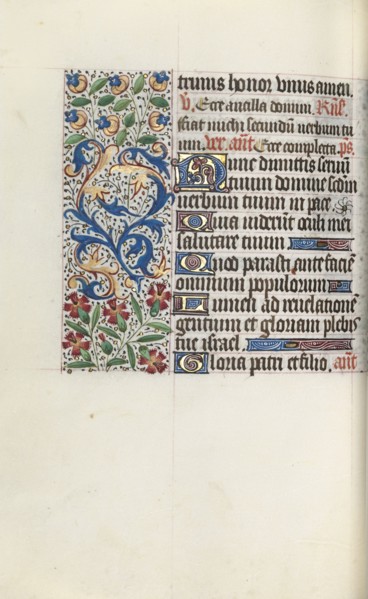 trinis honor vnus amen.
V. Ecce ancilla domini. Rus.
fiat michi secundũ uerbum tu
um. ant. Ecce completa. ps.
Nunc dimittis seruũ
tuum domine scdm
uerbum tuum in pace.
Quia uiderunt oculi mei
salutare tuum
Quod parasti ante faciē
omnium populorum
Lumen ad reuelationē
gentium et gloriam plebis
tue israel.
Gloria patri et filio. ant